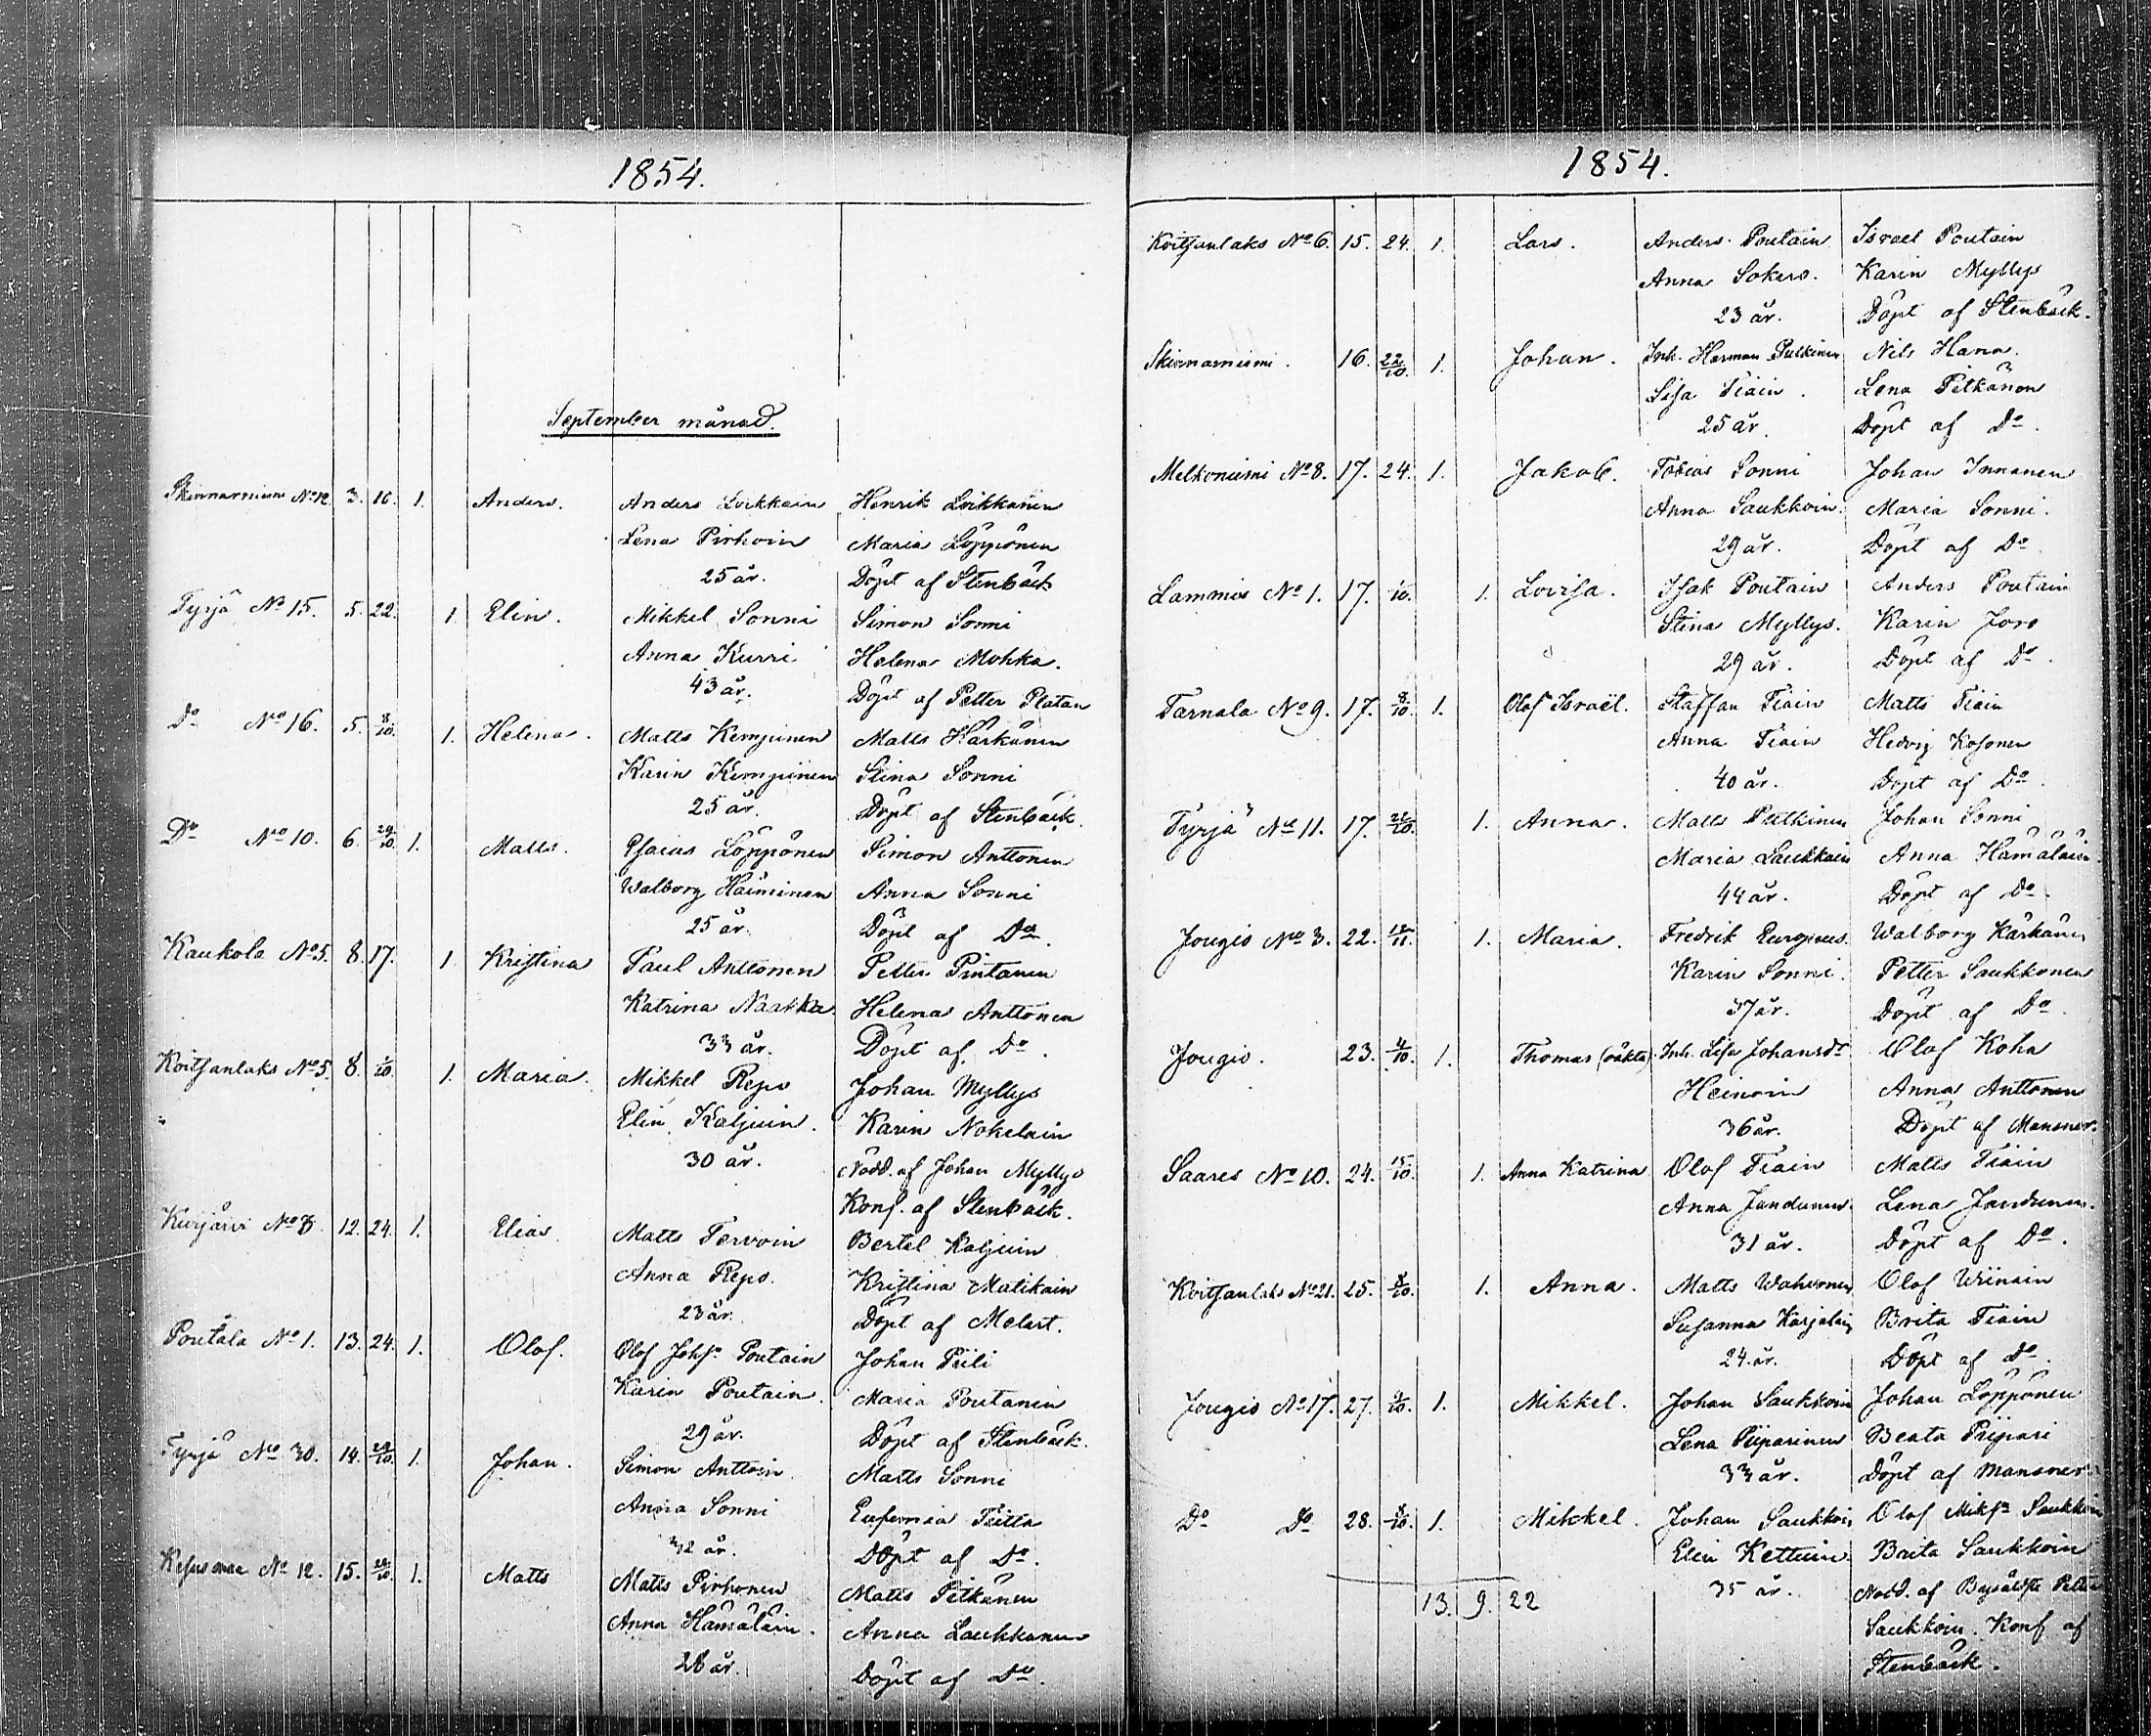 1854.
September månad.
Skinnarniemi No 12. 3. 16. 1. Anders. Anders Loikkain Henrik Loikkanen
Lena Pirhoin Maria Löppönen
25 år. Döpt af Stenbäck
Tyrjä No 15. 5. 22. 1. Elin. Mikkel Sonni Simon Sonni
Anna Kurri Helena Mohka.
43 år. Döpt af Petter Platan
Do No 16. 5. 8/10. 1. Helena. Matts Kempinen Matts Härkänen
Karin Kempinen Stina Sonni
25 år. Döpt af Stenbäck.
Do No 10. 6. 29/10. 1. Matts. Esaias Löppönen Simon Anttonen
Walborg Häiminen Anna Sonni
25 år. Döpt af Do.
Kaukola No 5. 8. 17. 1. Kristina Paul Anttonen Petter Pintanen
Katrina Naatka Helena Anttonen
33 år. Döpt af Do.
Koitsanlaks No 5. 8. 1/10. 1. Maria. Mikkel Repo Johan Myllys
Elin Kaljuin. Karin Nokelain
30 år. Nödd. af Johan Myllys
Konf. af Stenbäck.
Kurjärvi No 8. 12. 24. 1. Elias. Matts Tervoin Bertel Kaljuin
Anna Repo. Kristina Matikain
23 år. Döpt af Melart.
Poutala No 1. 13. 24. 1. Olof. Olof Johsn Poutain Johan Piili
Karin Poutain. Maria Poutanen
29 år. Döpt af Stenbäck.
Tyrjä No 30. 14. 29/10. 1. Johan. Simon Anttoin Matts Sonni
Anna Sonni Eufemia Teitta
32 år. Döpt af Do.
No 12. 15. 1. Matts Matts Pirhonen Matts Pitkänen
Anna Hämäläin. Anna Laukkanen
28 år. Döpt af Do.
1854.
Koitsanlaks No 6. 15. 24. 1. Lars. Anders Poutain Israel Poutain
Anna Sokero. Karin Myllys
23 år. Döpt af Stenbäck.
Skinnarniemi. 16. 22/10. 1. Johan. Inh. Herman Pulkinen Nils Hana.
Lisa Tiain. Lena Pitkänen
25 år. Döpt af Do.
Melkoniemi No 8. 17. 24. 1. Jakob. Tobias Sonni Johan Innanen
Anna Saukkoin. Maria Sonni.
29 år. Döpt af Do.
Lammis No 1. 17. 1/10. 1. Lovisa. Isak Poutain Anders Poutain
Stina Myllys. Karin Joro
29 år. Döpt af Do.
Tarnala No 9. 17. 8/10. 1. Olof Israël. Staffan Tiain Matts Tiain
Anna Tiain Hedvig Kosonen
40 år. Döpt af Do.
Tyrjä No 11. 17. 1. Anna. Matts Pulkinen Johan Sonni
Maria Laukkain Anna Hämäläin
44 år. Döpt af Do.
Jougio No 3. 22. 1. Maria. Fredrik Europæus. Walborg Kärkäinen
Karin Sonni. Petter Saukkonen
37 år. Döpt af Do
Jougio. 23. 4/10. 1. Thomas (oäkta). Inh. Lisa Johansdr Olof Koha
Heinoin Anna Anttonen
36 år. Döpt af Mansner.
Saares No 10. 24. 15/10. 1. Anna Katrina Olof Tiain Matts Tiain
Anna Jandunen. Lena Jandunen.
31 år. Döpt af Do.
Koitsanlaks No 21. 25. 8/10. 1. Anna. Matts Wahvonen Olof Wiinain
Susanna Karjalain Brita Tiain
24 år. Döpt af Do.
Jougio No 17. 27. 1. Mikkel. Johan Saukkoin Johan Löppönen
Lena Piiparinen Beata Piipari
33 år. Döpt af Mansner.
Do Do 28. 8/10. 1. Mikkel. Johan Saukkoin Olof Miksn Saukkoin
Elin Kettuin. Brita Saukkoin
13. 9. 22 35 år. Nödd. af Byäldste Petter
Saukkoin. Konf af
Stenbäck.